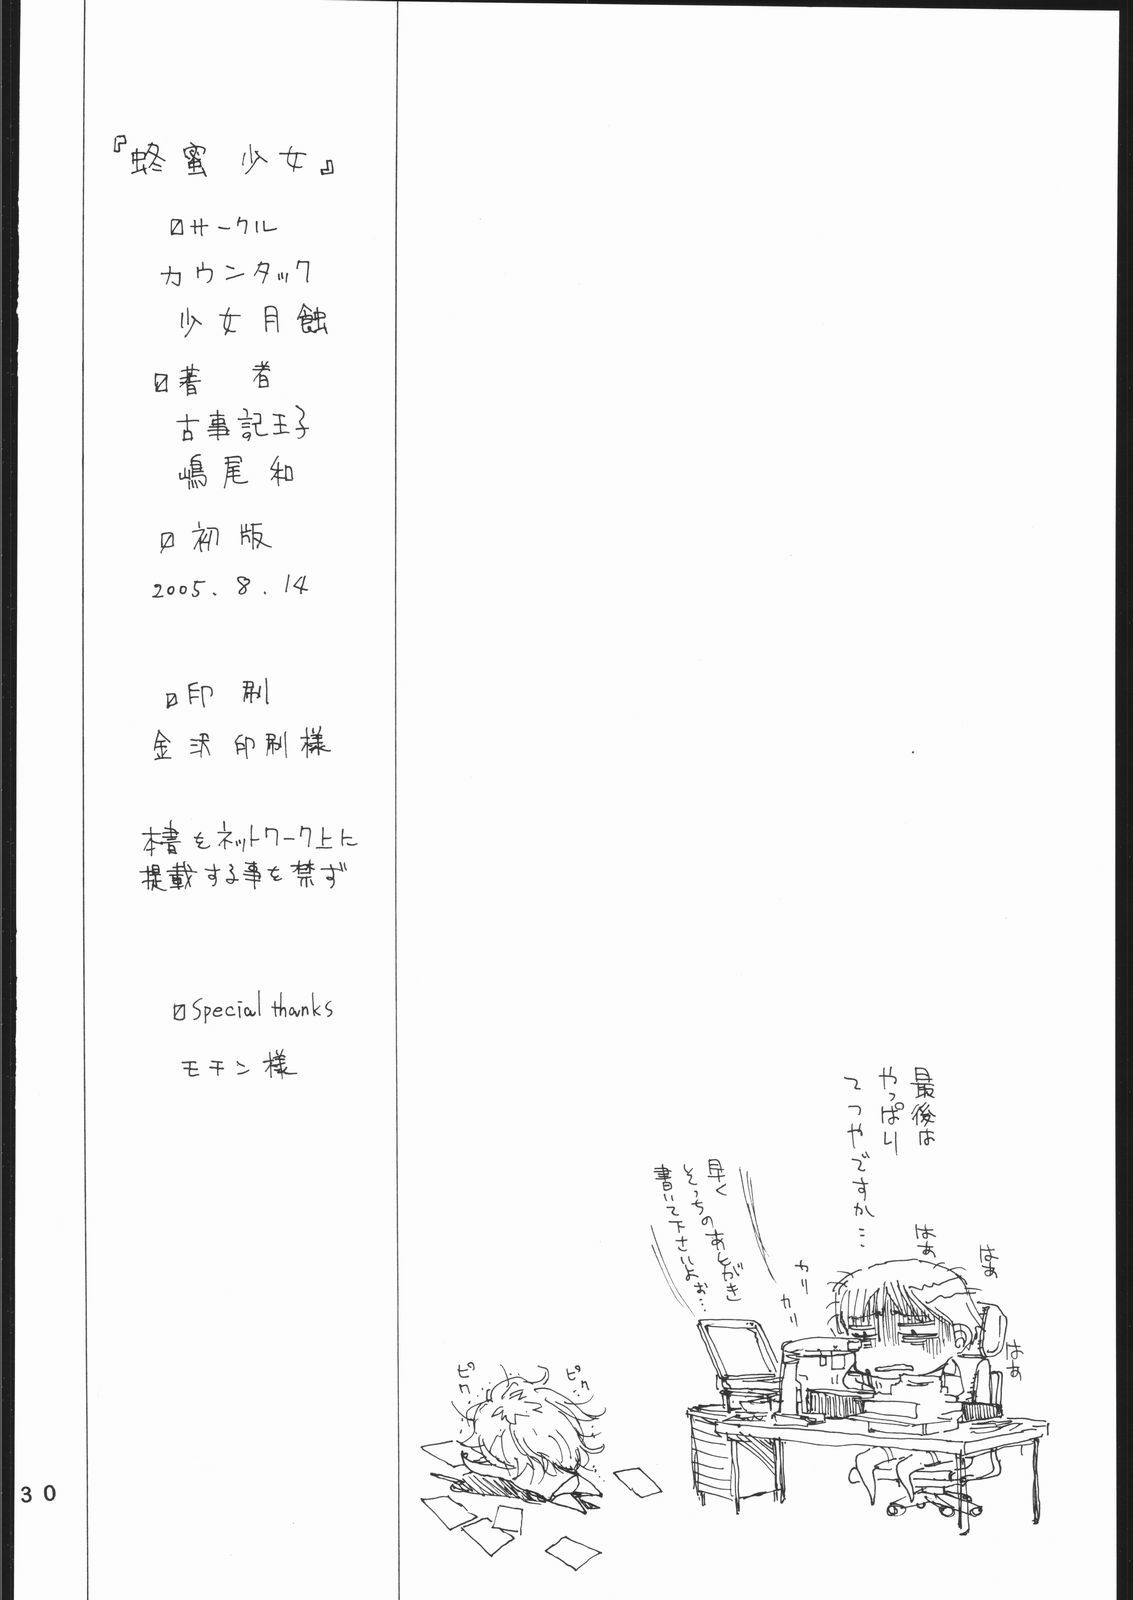 『蜂蜜少女』
サークル
カウンタック
少女月蝕
著者
古事記王子
嶋尾和
初版
2005.8.14
印刷
金沢印刷様
本書をネットワーク上に
掲載する事を禁ず
Special thanks
モチン様
最後は
やっぱり
てつやですか…
はぁ
はぁ
はぁ
早く
そっちのあとがき
書いて下さいよぉ…
カリ
カリ
ピク
ピク
30